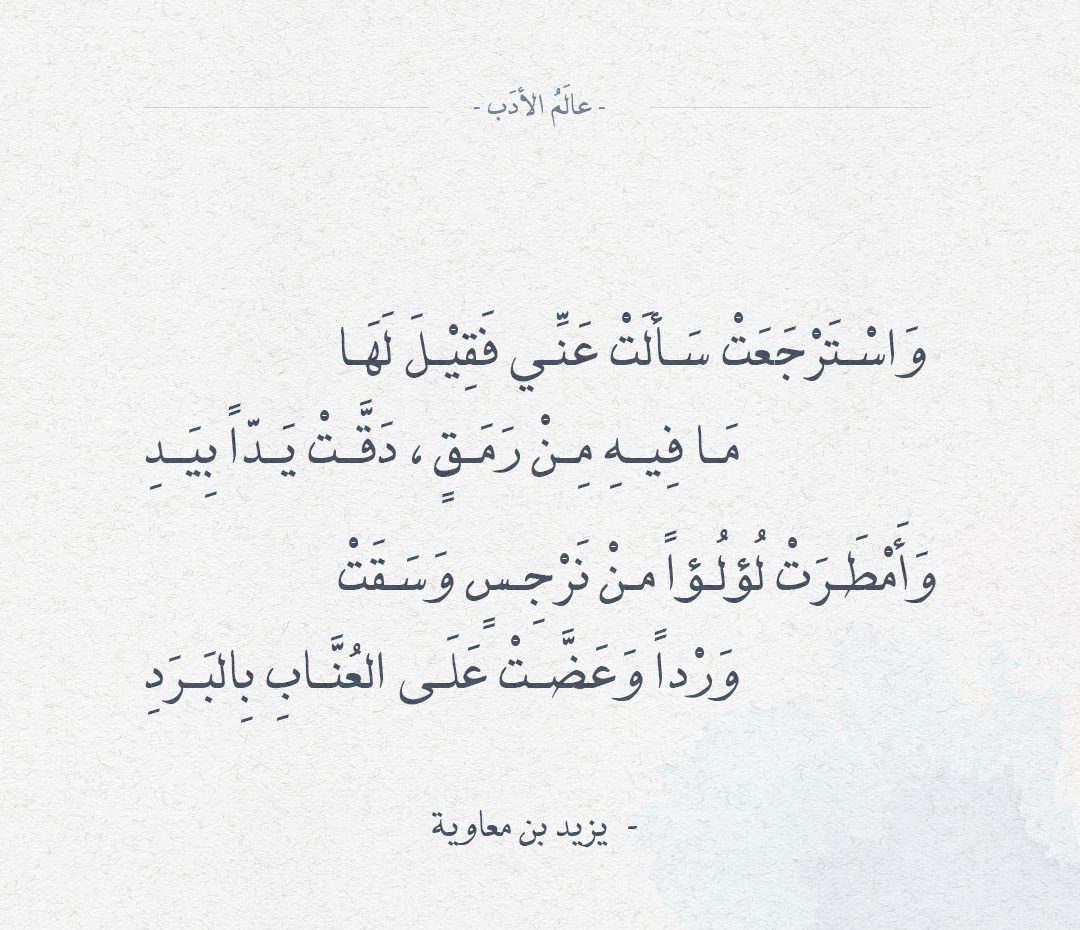 - عالَمُ الأدَب -
وَاسْتَرْجَعَتْ سَألَتْ عَنِّي فَقِيْلَ لَهَا
مَا فِيهِ مِنْ رَمَقٍ ، دَقَّتْ يَدّاً بِيَدِ
وَأَمْطَرَتْ لُؤلُؤاً منْ نَرْجِسٍ وَسَقَتْ
وَرْداً وَعَضَّتْ عَلَى العُنَّابِ بِالبَرَدِ
- يزيد بن معاوية